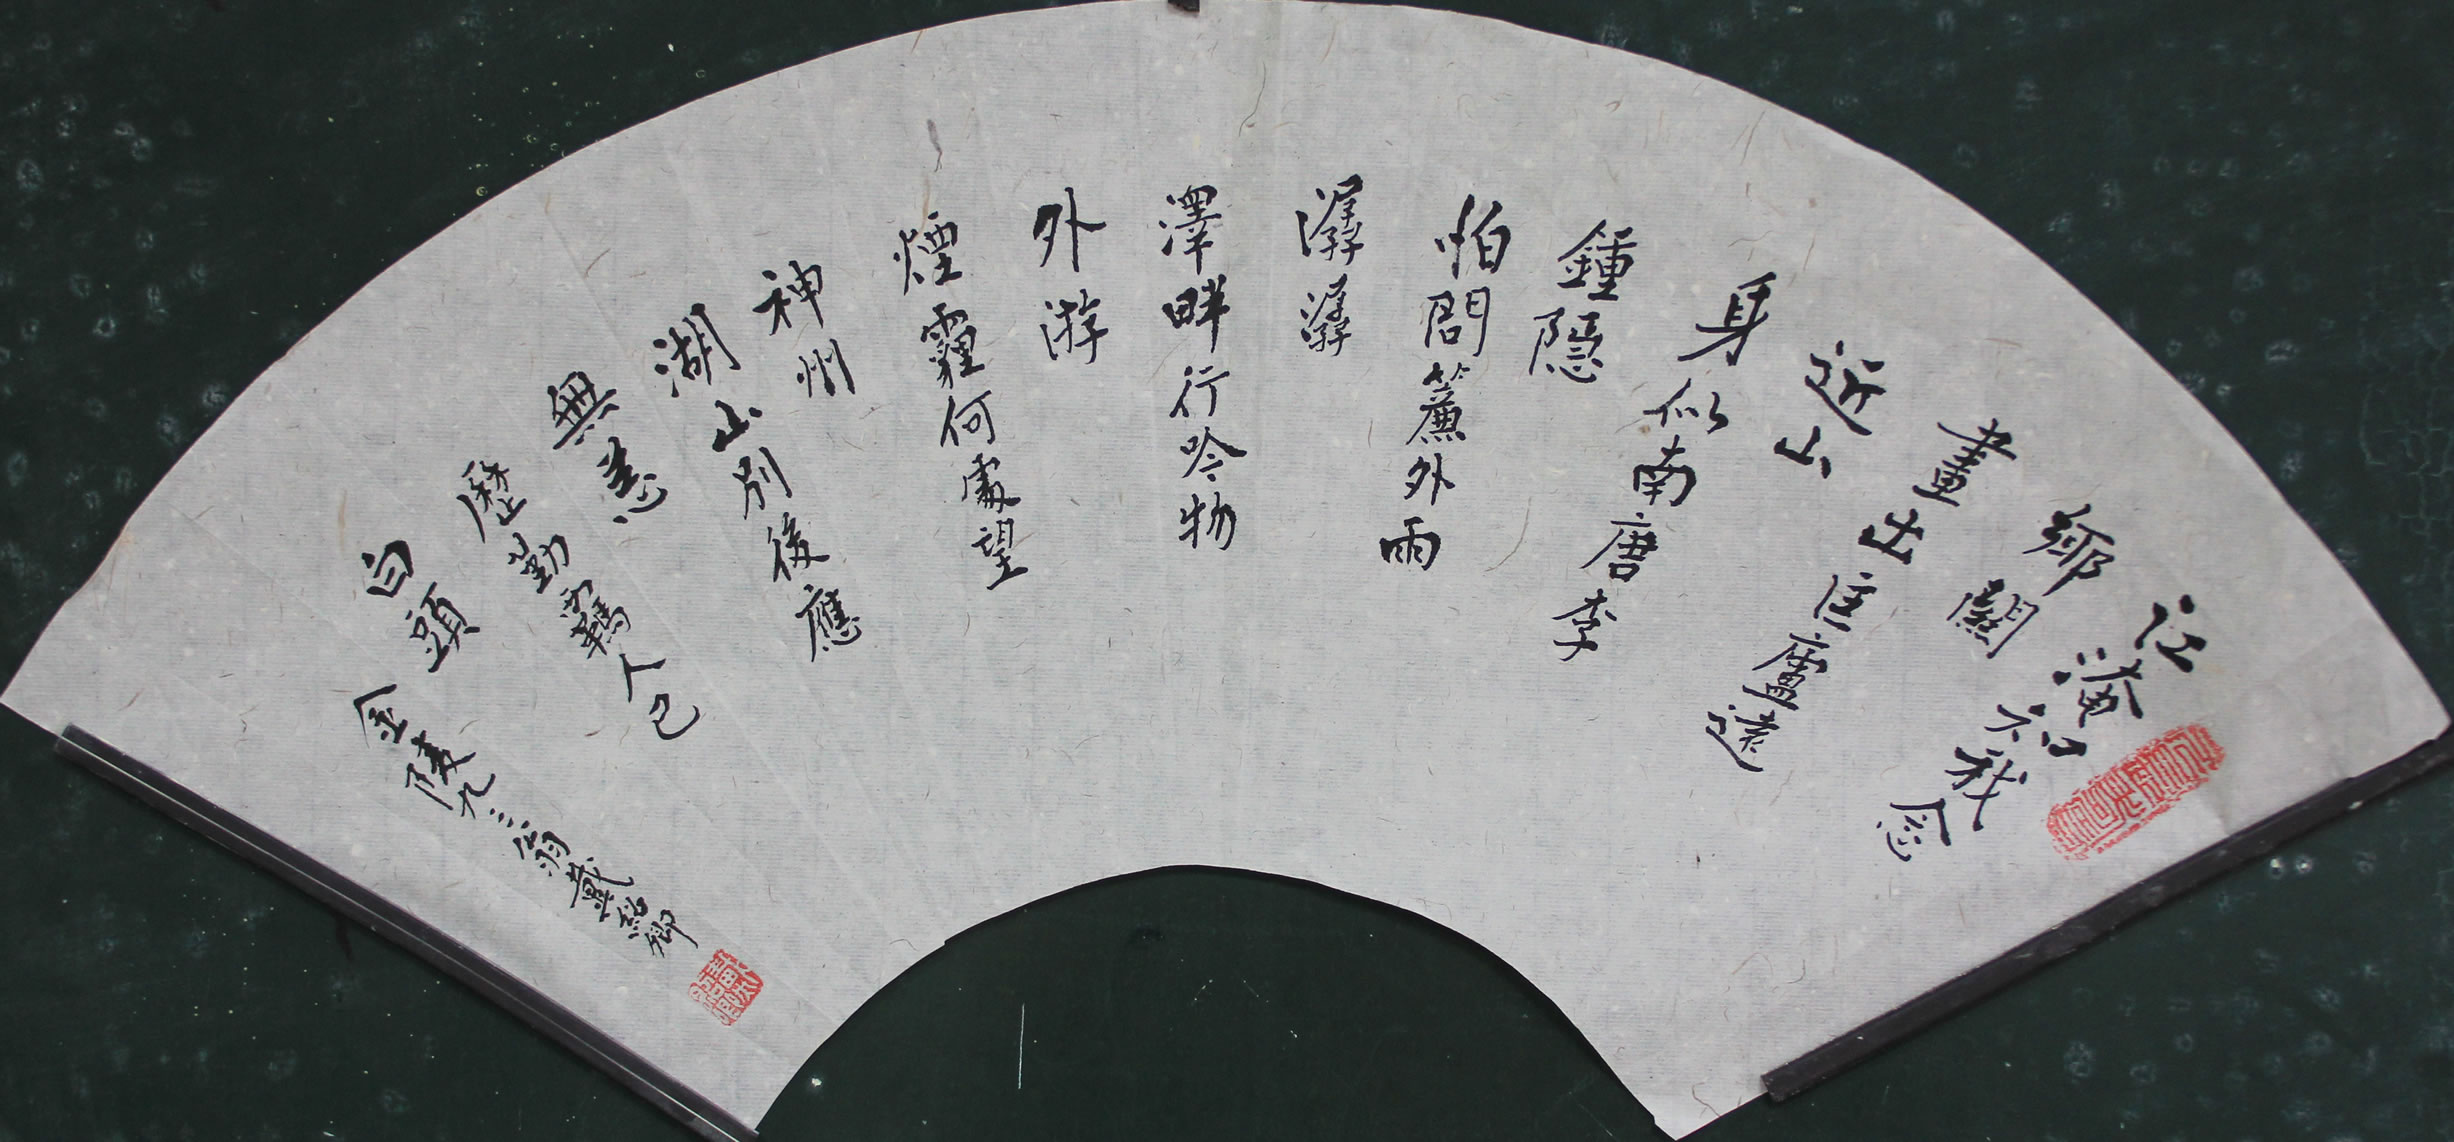 江潘知我念
鄉關
畫出匡廬遠
近山
身似南唐李
鍾隱
怕問簾外雨
潺潺
澤畔行吟物
外游
煙霾何處望
神州
湖山別後應
無恙
歷勤羈人已
白頭
金陵九三翁戴紹卿